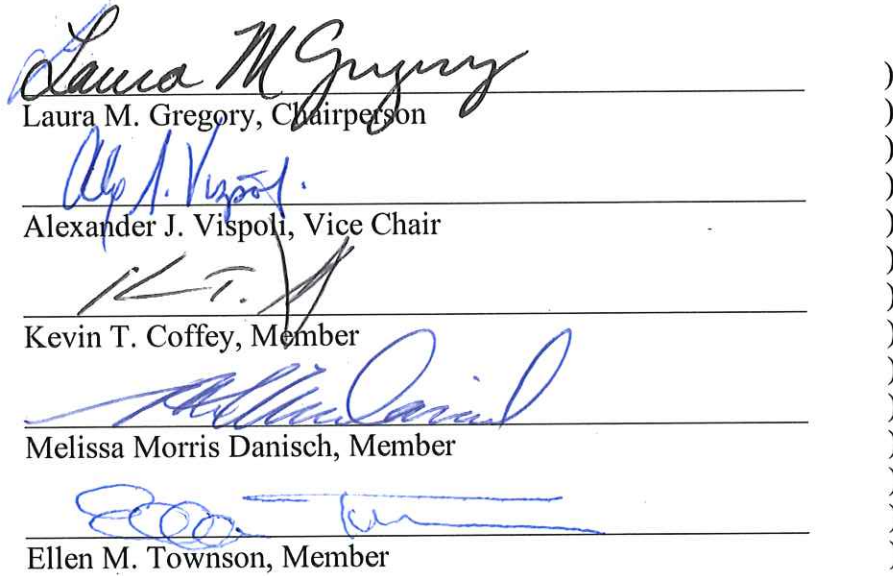 Laura M Gregory )
Laura M. Gregory, Chairperson )
)
Alex J. Vispoli )
Alexander J. Vispoli, Vice Chair )
)
K T. )
Kevin T. Coffey, Member )
)
)
Melissa Morris Danisch, Member )
)
)
Ellen M. Townson, Member )